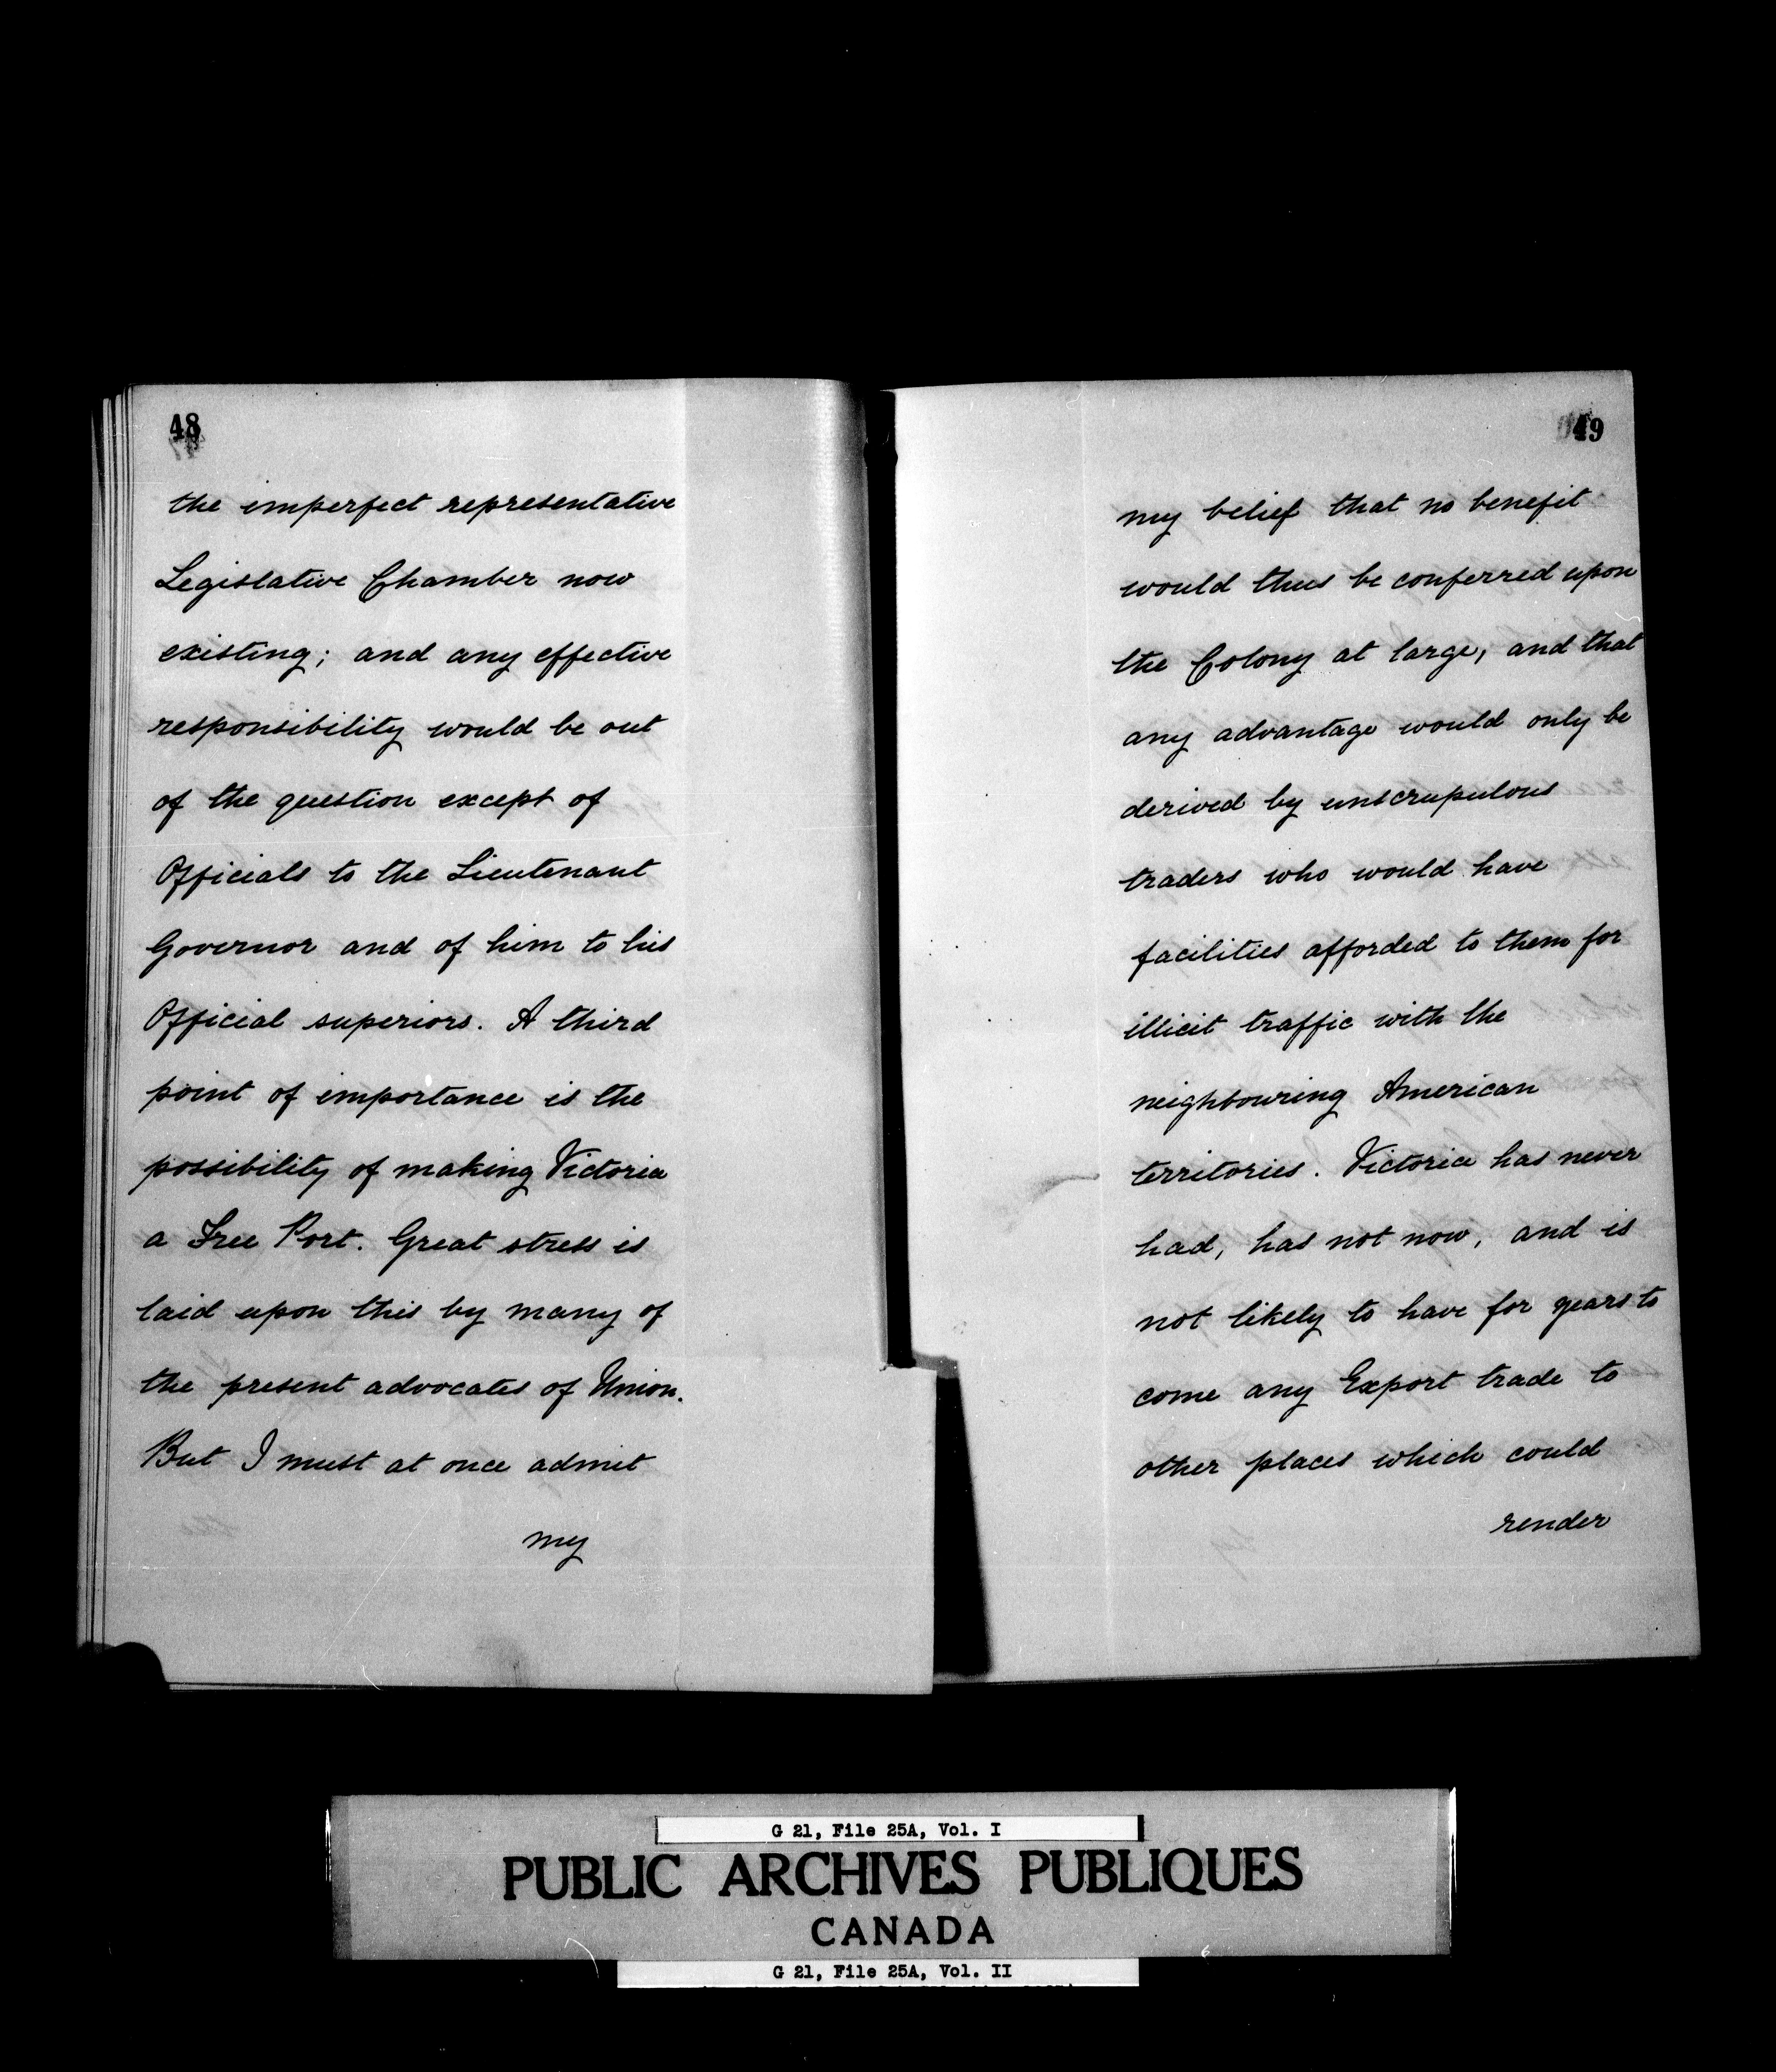 48
the imperfect representative
Legislative Chamber now
existing; and any effective
responsibility would be out
of the question except of
Officials to the Lieutenant
Governor and of him to his
Official superiors. A third
point of importance is the
possibility of making Victoria
a Free Port. Great stress is
laid upon this by many of
the present advocates of Union.
But I must at once admit
my
49
my belief that no benefit
would thus be conferred upon
the Colony at large, and that
any advantage would only be
derived by unscrupulous
traders who would have
facilities afforded to them for
illicit traffic with the
neighbouring American
territories. Victoria has never
had, has not now, and is
not likely to have for years to
come any Export trade to
other places which could
render
G 21, File 25A, Vol. I
PUBLIC ARCHIVES PUBLIQUES
CANADA
G 21, File 25A, Vol. II